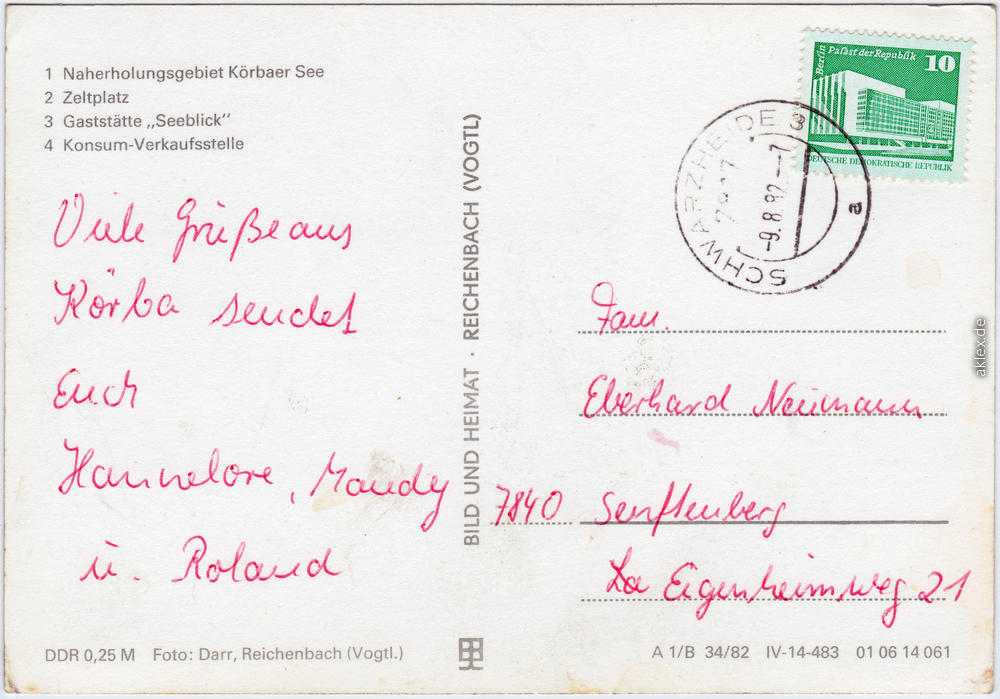 1 Naherholungsgebiet Körbaer See
2 Zeltplatz
3 Gaststätte „Seeblick"
4 Konsum-Verkaufsstelle
Viele Grüße aus
Körba sendet
Euch
Hannelore, Mandy
u. Roland
DDR 0,25 M Foto: Darr, Reichenbach (Vogtl.)
BILD UND HEIMAT · REICHENBACH (VOGTL)
Berlin Palast der Republik 10
DEUTSCHE DEMOKRATISCHE REPUBLIK
SCHWARZHEIDE 3
-9.8.82.--7
a
Fam.
Eberhard Neumann
7840 Senftenberg
Eigenheimweg 21
A 1/B 34/82 IV-14-483 01 06 14 061
aklex.de